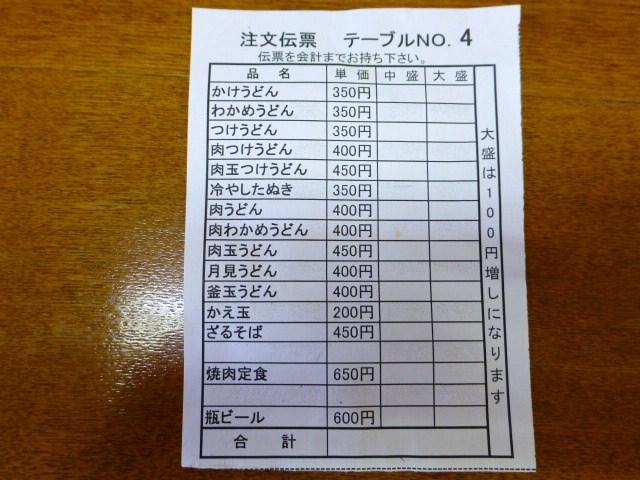 注文伝票 テーブルNO. 4
伝票を会計までお持ち下さい。
品名 単価 中盛 大盛
かけうどん 350円
わかめうどん 350円
つけうどん 350円
肉つけうどん 400円
肉玉つけうどん 450円
冷やしたぬき 350円
肉うどん 400円
肉わかめうどん 400円
肉玉うどん 450円
月見うどん 400円
釜玉うどん 400円
かえ玉 200円
ざるそば 450円
焼肉定食 650円
瓶ビール 600円
合計
大盛は100円増しになります